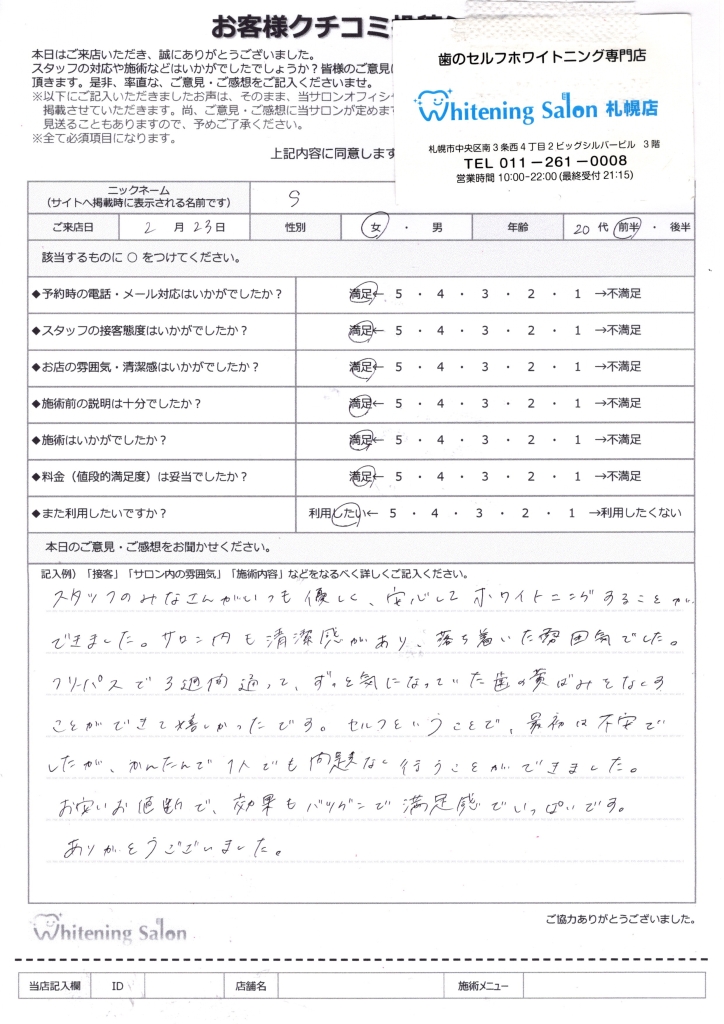 お客様クチコミ
本日はご来店いただき、誠にありがとうございました。
スタッフの対応や施術などはいかがでしたでしょうか？皆様のご意見
頂きます。是非、率直な、ご意見・ご感想をご記入くださいませ。
※以下にご記入いただきましたお声は、そのまま、当サロンオフィシ
掲載させていただきます。尚、ご意見・ご感想に当サロンが定めます
見送ることもありますので、予めご了承ください。
※全て必須項目になります。
上記内容に同意します
歯のセルフホワイトニング専門店
Whitening Salon 札幌店
札幌市中央区南3条西4丁目2ビッグシルバービル 3階
TEL 011-261-0008
営業時間 10:00-22:00(最終受付 21:15)
ニックネーム
（サイトへ掲載時に表示される名前です）
S
ご来店日 2 月 23 日 性別 女 ・ 男 年齢 20 代 前半 ・ 後半
該当するものに ○ をつけてください。
◆予約時の電話・メール対応はいかがでしたか？ 満足← 5 ・ 4 ・ 3 ・ 2 ・ 1 →不満足
◆スタッフの接客態度はいかがでしたか？ 満足← 5 ・ 4 ・ 3 ・ 2 ・ 1 →不満足
◆お店の雰囲気・清潔感はいかがでしたか？ 満足← 5 ・ 4 ・ 3 ・ 2 ・ 1 →不満足
◆施術前の説明は十分でしたか？ 満足← 5 ・ 4 ・ 3 ・ 2 ・ 1 →不満足
◆施術はいかがでしたか？ 満足← 5 ・ 4 ・ 3 ・ 2 ・ 1 →不満足
◆料金（値段的満足度）は妥当でしたか？ 満足← 5 ・ 4 ・ 3 ・ 2 ・ 1 →不満足
◆また利用したいですか？ 利用したい← 5 ・ 4 ・ 3 ・ 2 ・ 1 →利用したくない
本日のご意見・ご感想をお聞かせください。
記入例）「接客」「サロン内の雰囲気」「施術内容」などをなるべく詳しくご記入ください。
スタッフのみなさんがいつも優しく、安心してホワイトニングすることが
できました。サロン内も清潔感があり、落ち着いた雰囲気でした。
フリーパスで3週間通って、ずっと気になっていた歯の黄ばみをなくす
ことができて嬉しかったです。セルフということで、最初は不安で
したが、かんたんで1人でも問題なく行うことができました。
お安いお値段で、効果もバツグンで満足感でいっぱいです。
ありがとうございました。
ご協力ありがとうございました。
Whitening Salon
当店記入欄 ID 店舗名 施術メニュー